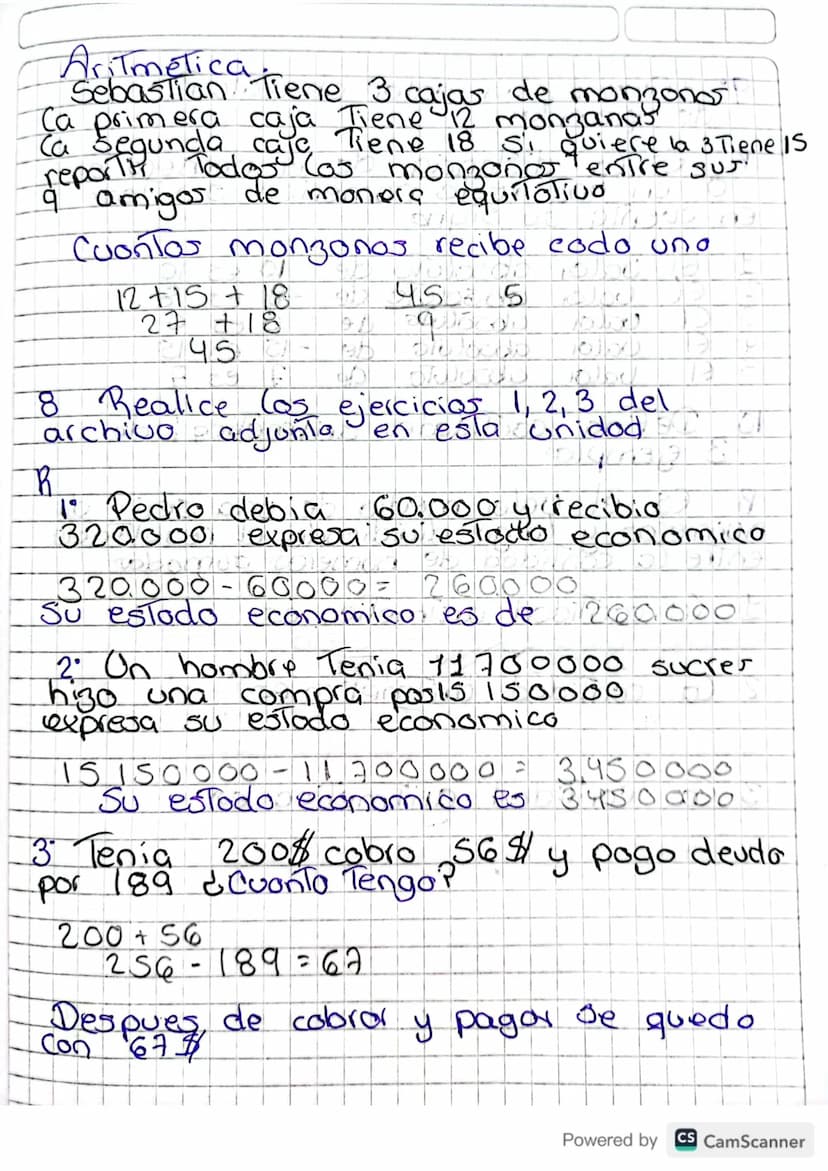 Aritmética.
Sebastian Tiene 3 cajas de manzanas
la primera caja Tiene 12 manzanas
la segunda caja Tiene 18 si quiere la 3 Tiene 15
repartir Todas las manzanas entre sus
9 amigos de manera equitativa
Cuantas manzanas recibe cada uno
12 + 15 + 18 45 = 5
27 + 18 9
45
8 Realice los ejercicios 1, 2, 3 del
archivo adjunta en esta unidad
R
1° Pedro debia 60.000 y recibio
320.000 expresa su estado economico
320.000 - 60000 = 260000
Su estado economico es de 260.000
2° Un hombre Tenia 11700000 sucres
hizo una compra por 15 150000
expresa su estado economico
15,150000 - 11.700000 = 3.450000
Su estado economico es 3450000
3° Tenia 200$ cobro 56$ y pago deuda
por 189 ¿Cuanto Tengo?
200 + 56
256 - 189 = 67
Despues de cobrar y pagar se quedo
con 67$
Powered by CS CamScanner